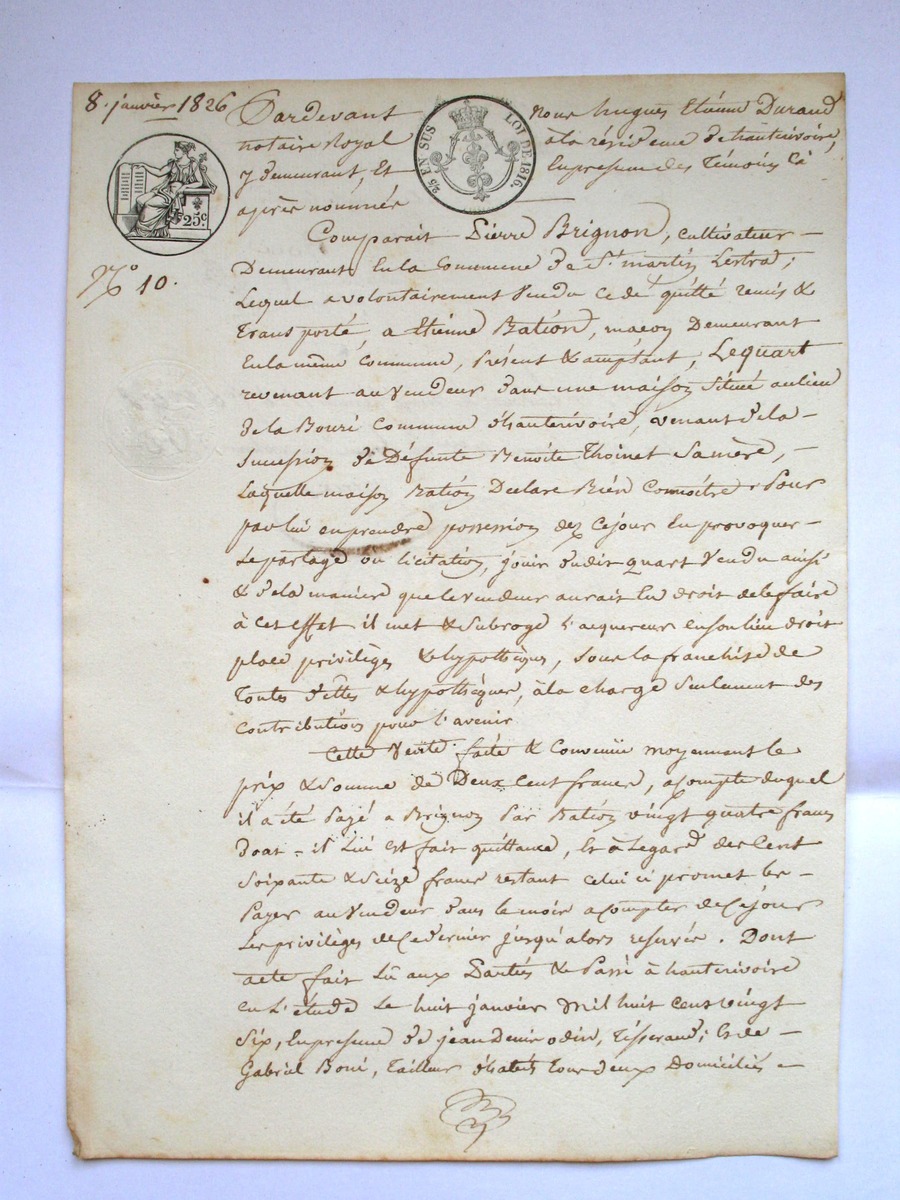 8. janvier 1826
Pardevant Nous hugues Etienne Durand
notaire Royal à la résidence de hauterivoire,
y demeurant, Et En presence des Témoins Cy
après nommés
25 EN SUS LOI DE 1816.
25 c
N° 10.
Comparait Pierre Brignon, cultivateur
Demeurant En la Commune de St. martin Lestra;
Lequel a volontairement Vendu Cedé quitté remis &
transporté, a Etienne Bation, maçon Demeurant
En la même Commune, Présent & acceptant, Le quart
revenant au Vendeur dans une maison Située au lieu
de la Bouri Commune d'hauterivoire, vénant de la
Succession de Défunte Benoite Thoinet Sa mère,
Laquelle maison Bation Declare Bien Connoître. Pour
par lui en prendre possession dez ce jour En provoquer
Le partage ou licitation, jouir dudit quart Vendu ainsi
& de la maniere que le vendeur aurait Eu droit de le faire
à Cet effet il met & Subroge l'acquereur en son lieu droit
place privilèges & hypothèques, Sous la franchise de
Toutes dettes & hypothèques, à la charge Seulement des
Contributions pour l'avenir
Cette Vente faite & Convenüe moyennant le
prix & Somme de Deux Cent francs, acompte duquel
il a été Payé a Brignon Par Bation vingt quatre francs
Dont il Lui est fait quittance, Et à Legard des Cent
Soixante & Seize francs restant Celui ci promet les
Payer au Vendeur dans le mois a compter de Ce jour
Les privilèges de Ce dernier jusqu'alors reservés. Dont
acte fait Lû aux Parties & Passé à hauterivoire
en L'étude Le huit janvier Mil huit Cent vingt
Six, En presence de jean Denis odin, Tisserand; Et de
Gabriel Boni, Tailleur d'habits tous deux Domiciliés